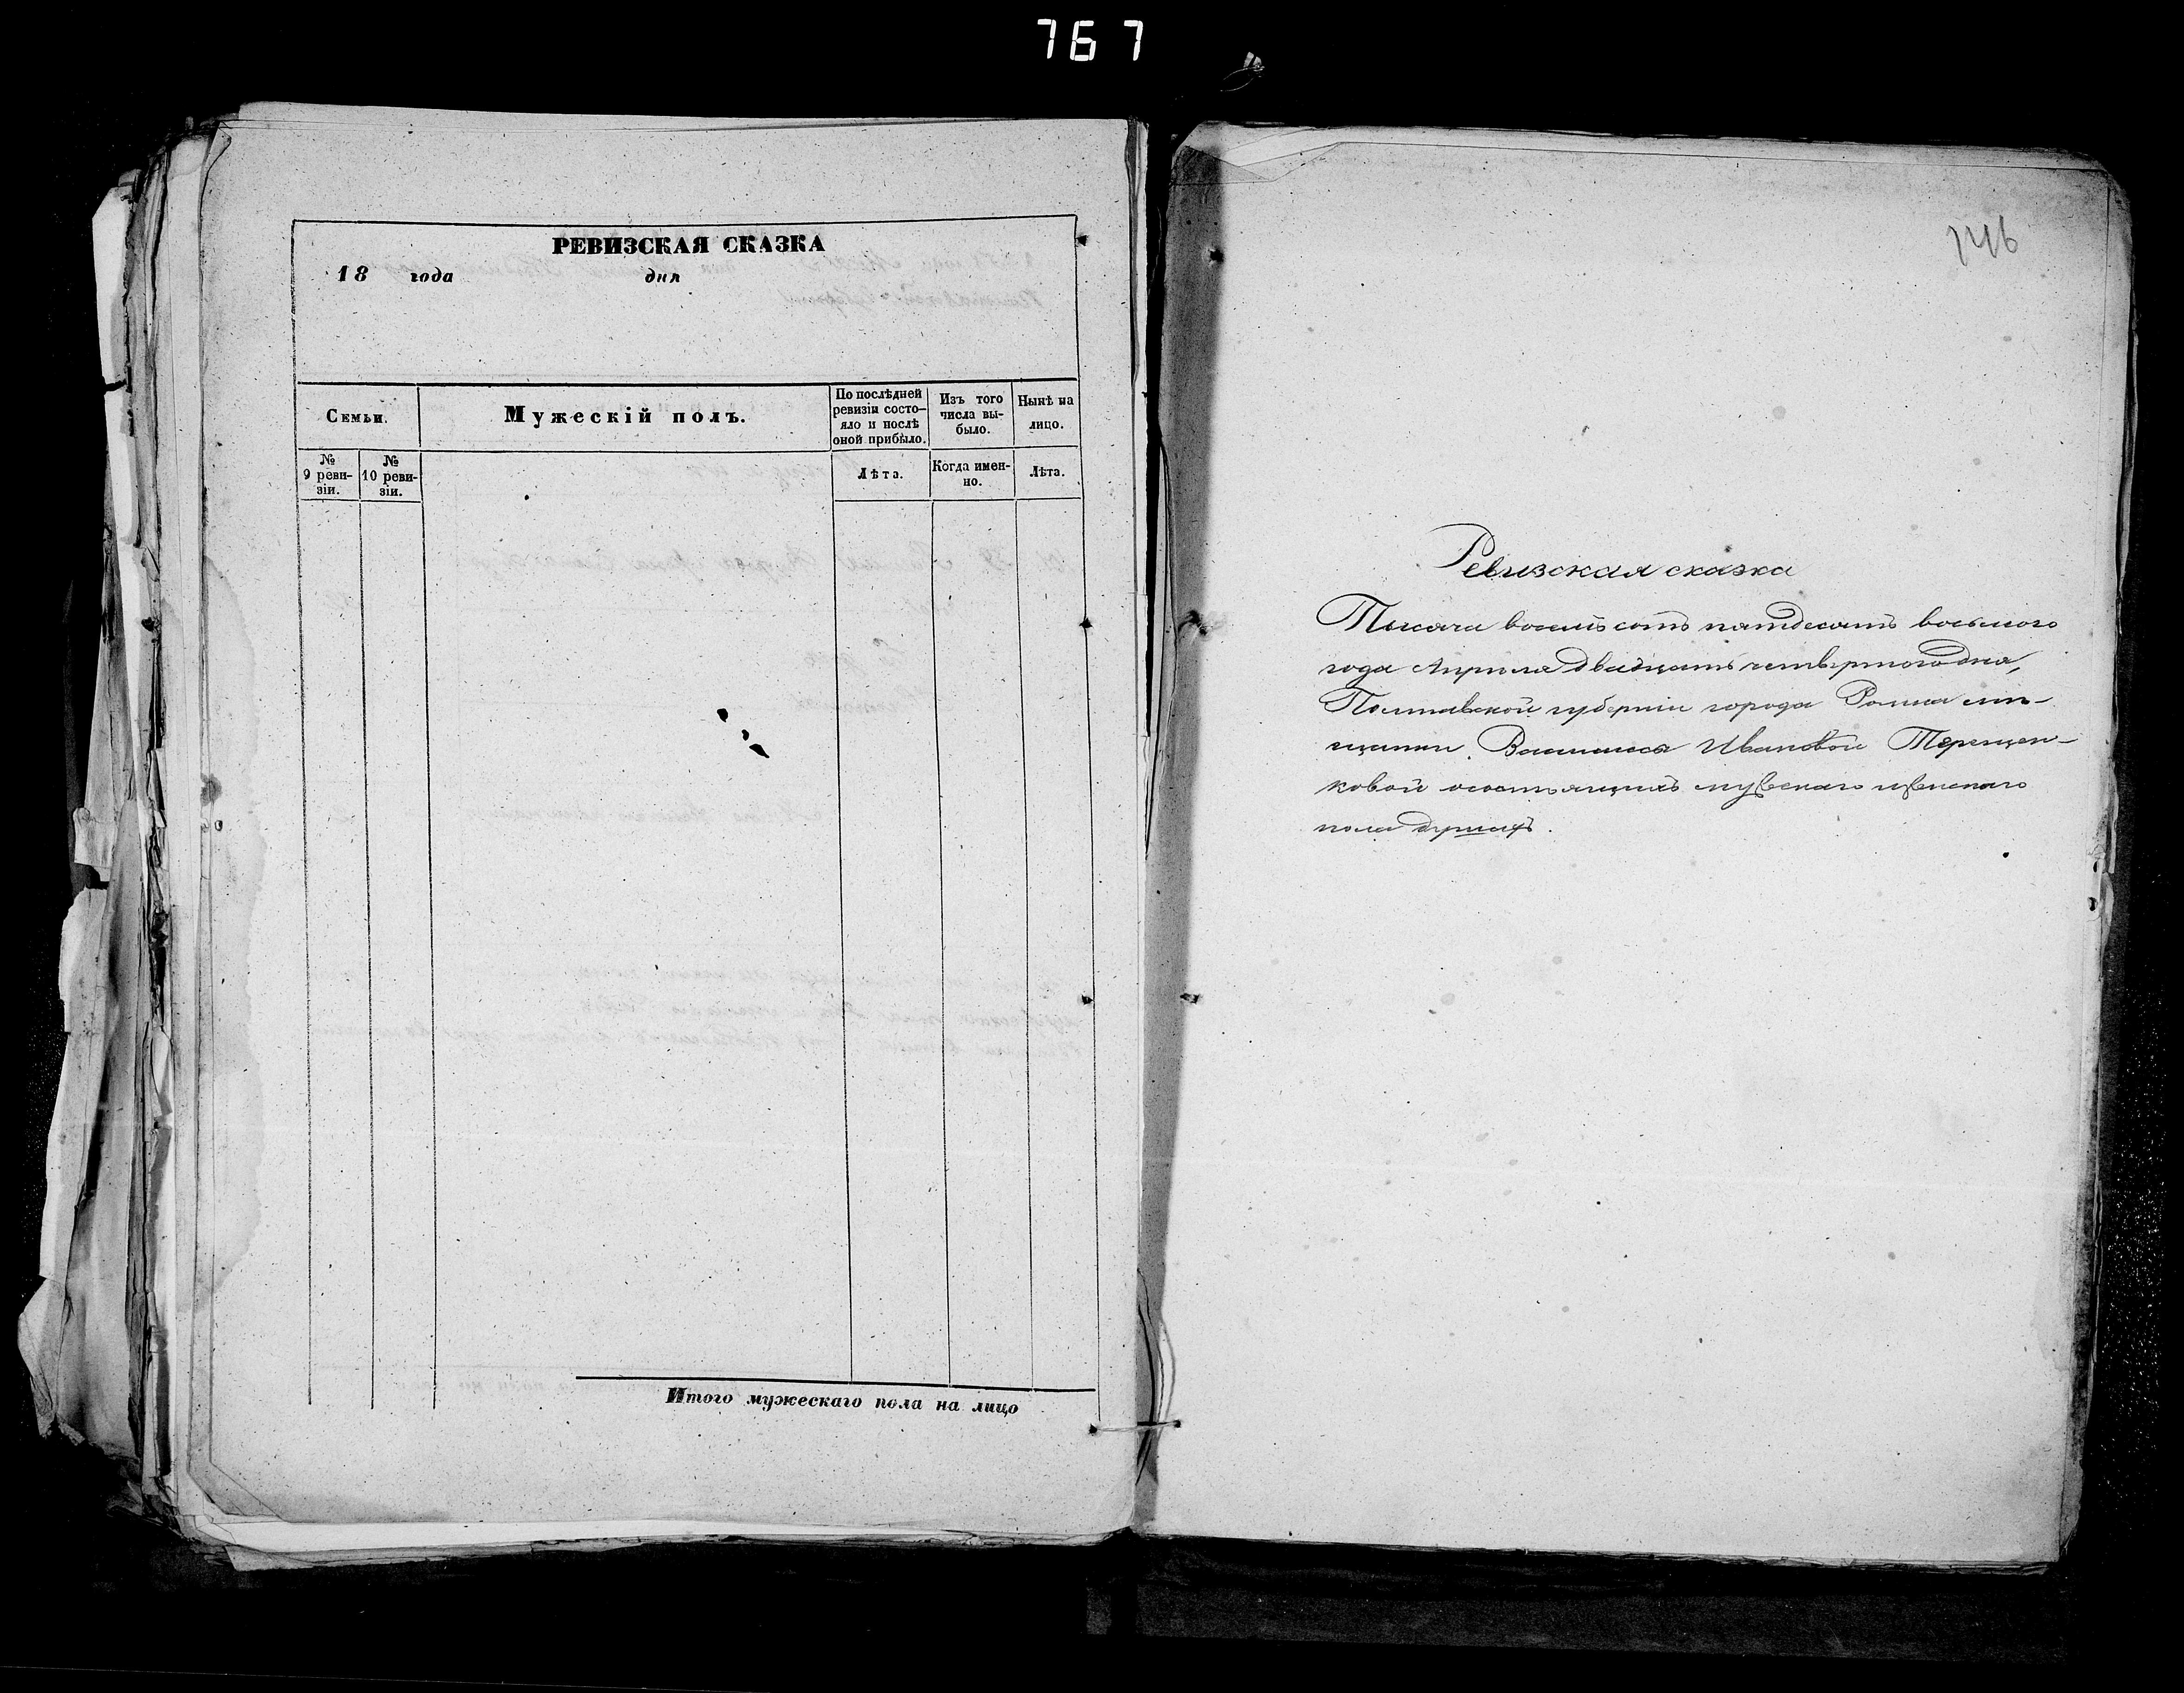 767
РЕВИЗСКАЯ СКАЗКА
18 года дня
Семьи.
Мужескій полъ.
По послѣдней
ревизіи состо-
яло и послѣ
оной прибыло.
Изъ того
числа вы-
было.
Нынѣ на
лицо.
№
9 реви-
зіи.
№
10 реви-
зіи.
Лѣта.
Когда имен-
но.
Лѣта.
Итого мужескаго пола на лицо
146
Ревизская сказка
Тысяча восемь сотъ пятдесятъ восьмого
года Апреля двадцать четвертого дня,
Полтавской губерніи города Ромна мѣ-
щанки Ивановой Терещен-
ковой о состоящихъ мужскаго и женскаго
пола душахъ.